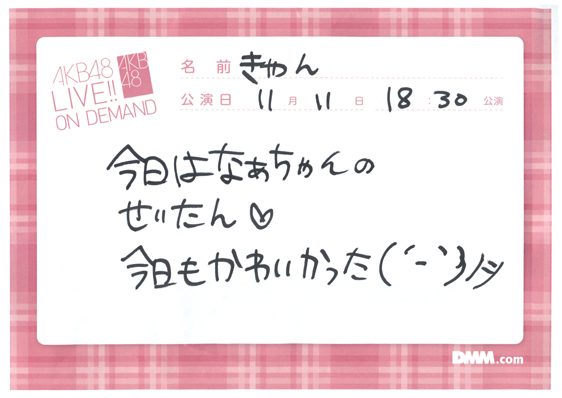 AKB48
LIVE!!
ON DEMAND
AKB
48
名前 きゃん
公演日 11月11日 18:30公演
今日はなぁちゃんの
せいたん♡
今日もかわいかった(´-`)ﾉｼ
DMM.com